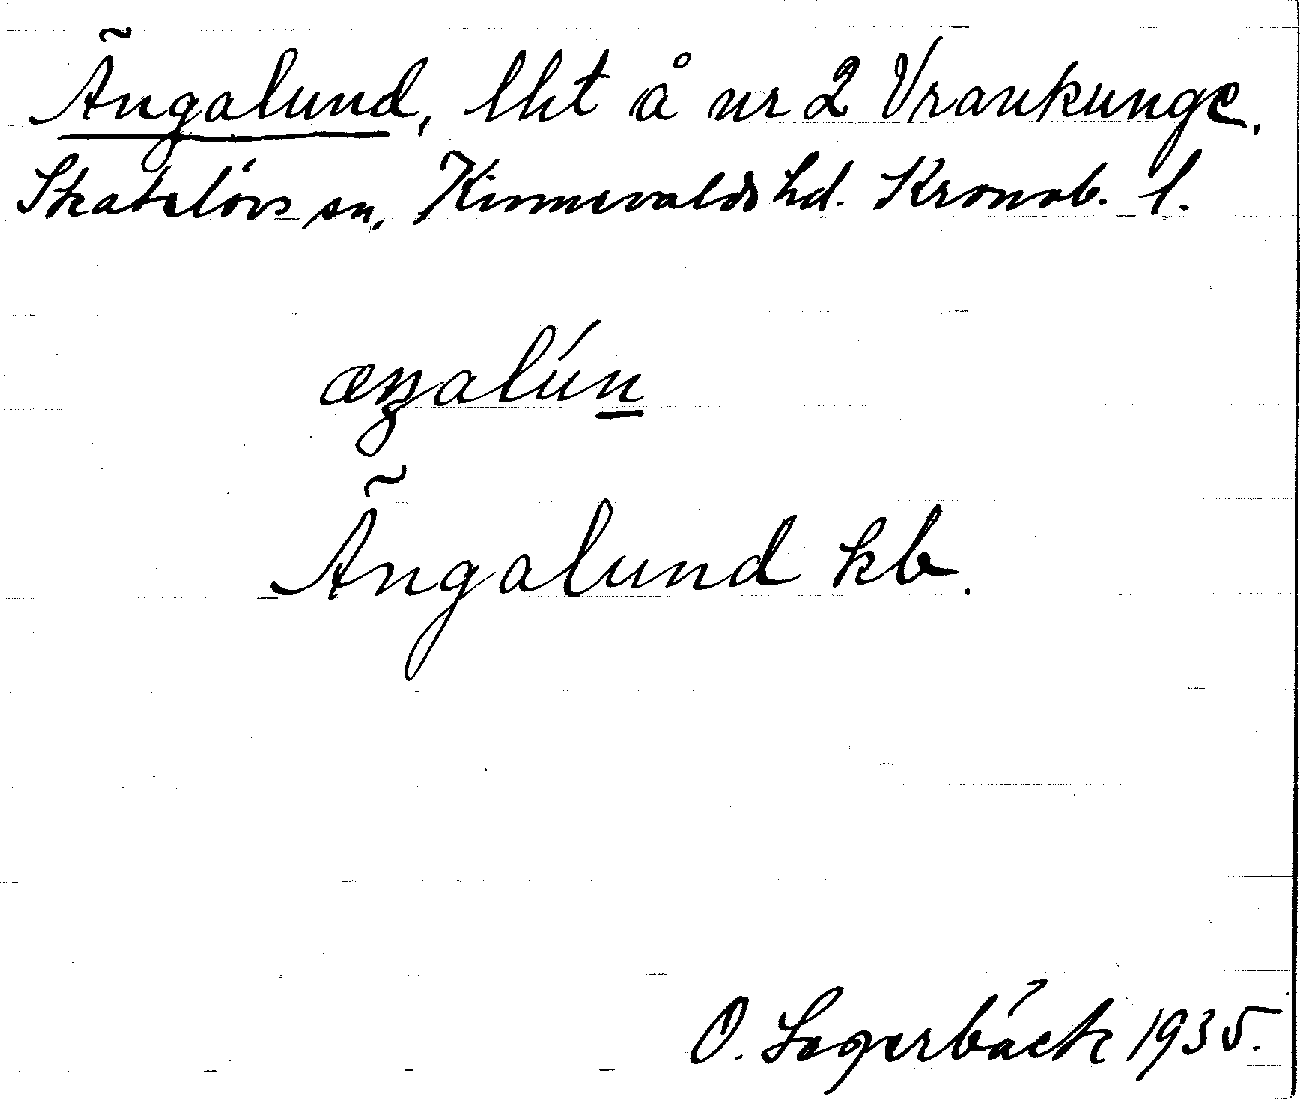 Ängalund, lht å nr 2 Vrankunge.
Skatelövs sn, Kinnevalds hd. Kronob. l.
æŋalún
Ängalund kb.
O. Lagerbäck 1935.